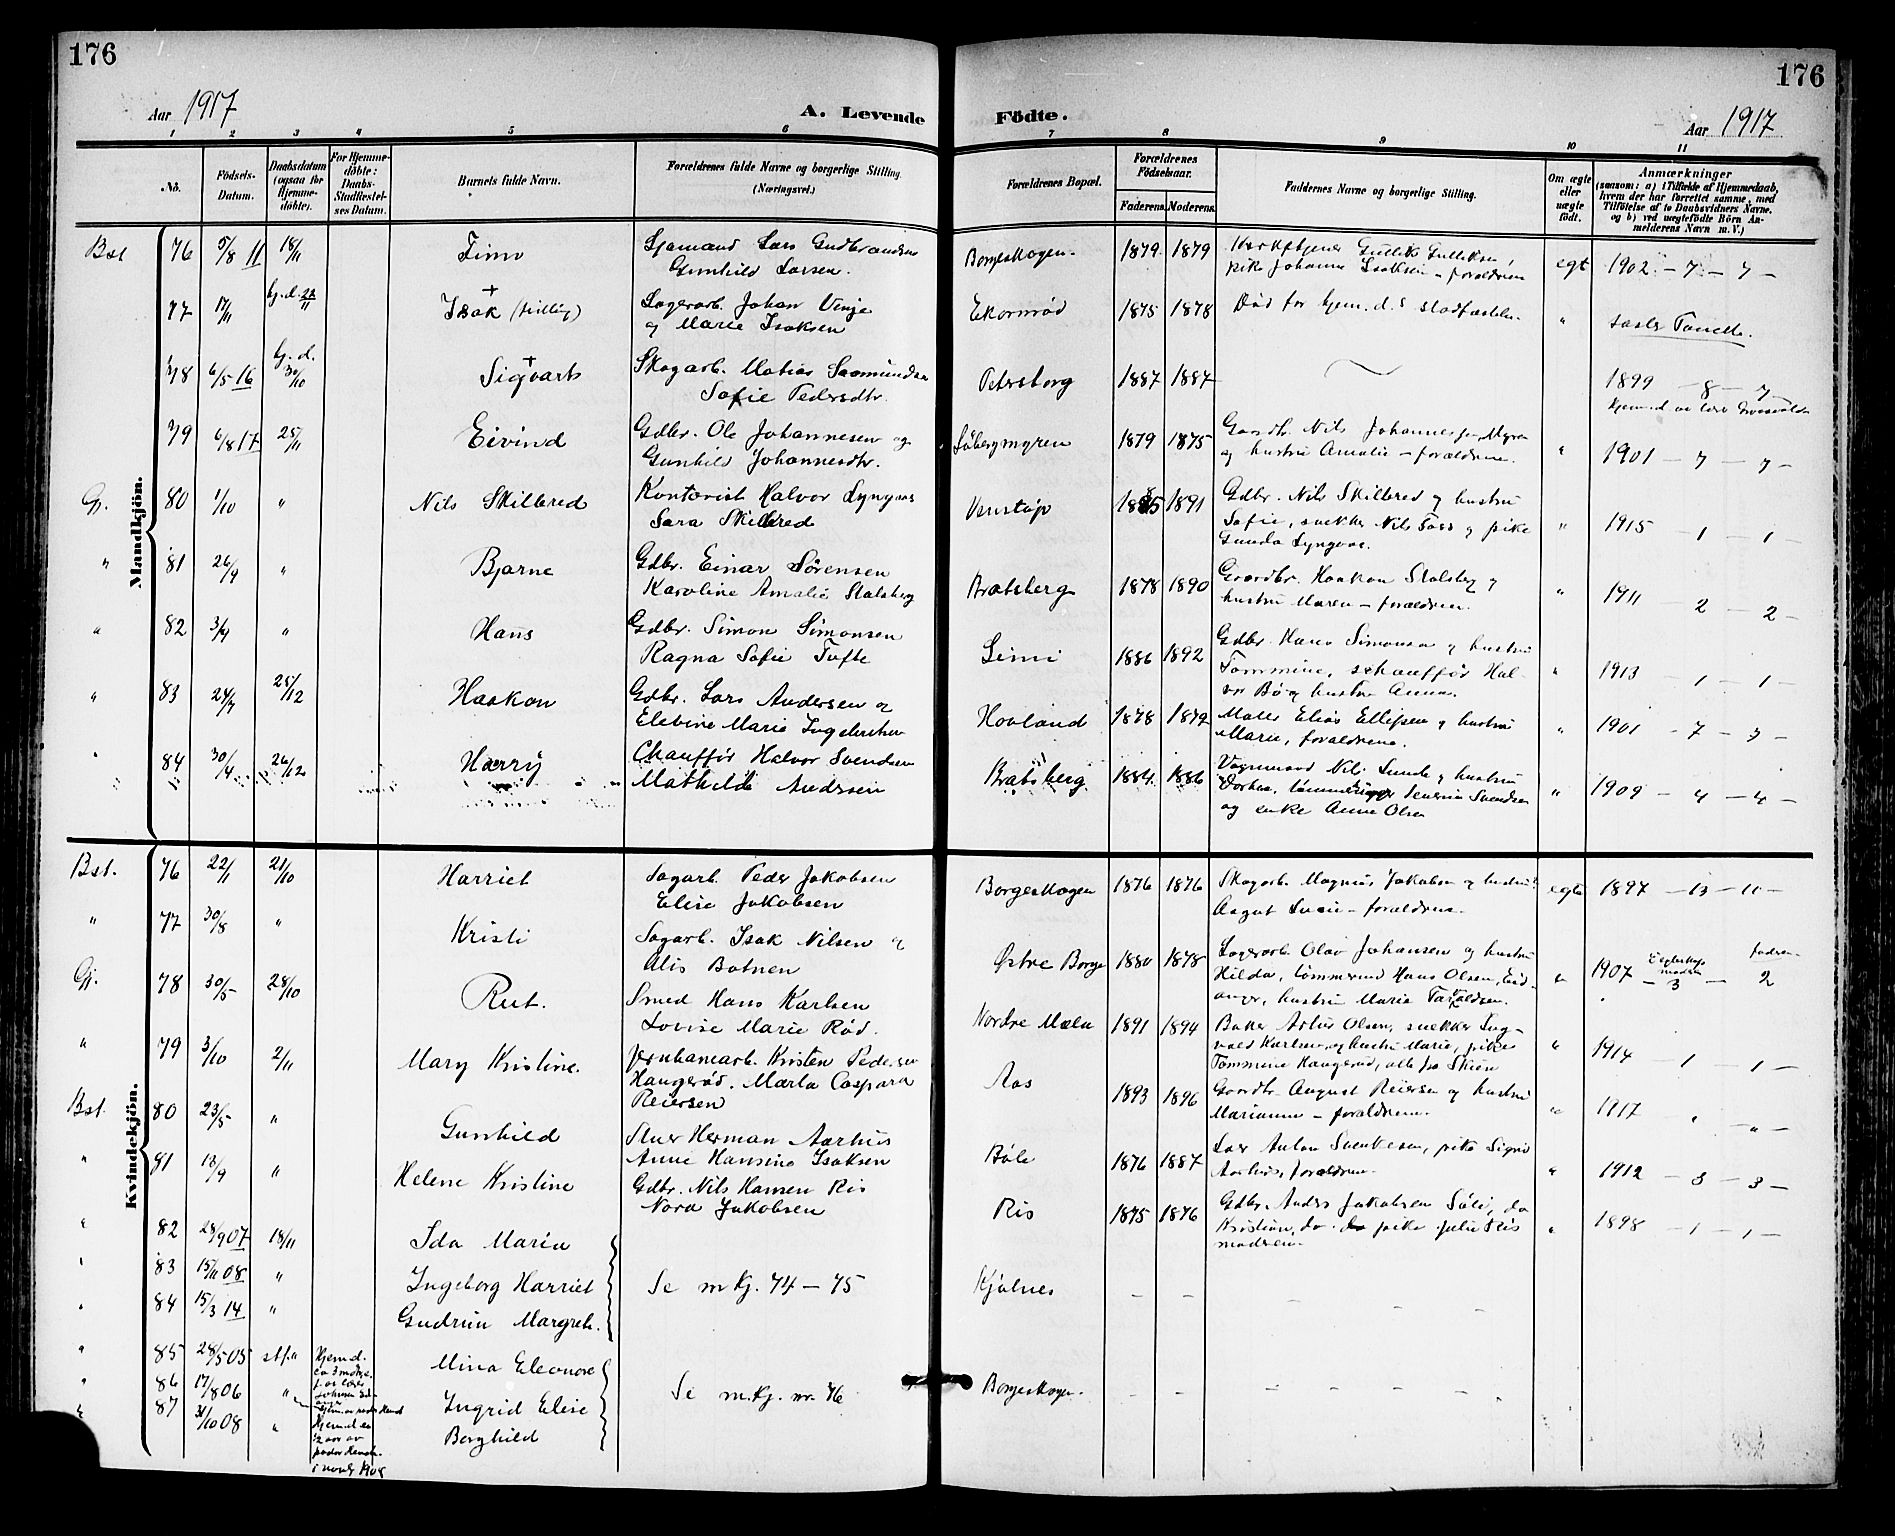 176
176
Aar 1917
A. Levende Födte.
Aar 1917
1 2 3 4 5 6 7 8 9 10 11
No.
Födsels-Datum.
Daabsdatum (ogsaa for Hjemme-döbte).
For Hjemme-döbte: Daabs-Stadfæstel-ses Datum.
Barnets fulde Navn.
Forældrenes fulde Navne og borgerlige Stilling. (Næringsvei.)
Forældrenes Bopæl.
Forældrenes Födselsaar.
Faderens Moderens
Faddernes Navne og borgerlige Stilling.
Om ægte eller uægte födt.
Anmærkninger
(saasom: a) i Tilfælde af Hjemmedaab, hvem der har forrettet samme, med Tilföielse af to Daabsvidners Navne, og b) ved uægtefödte Börn An-melderens Navn m. V.)
Mandkjön.
Bst 76 5/8 11 18/11 Finn Sjømand Lars Gudbrandsen Gunhild Larsen. Borgeskogen. 1879 1879 Gullik Gulliksen, pike Johanne Isaksen – forældrene egt 1902 – 7 – 7 –
77 17/11 hj. d. 22/11 Isak (tvilling) + Sagarb. Johan Vinje og Marie Isaksen Ekornrød 1875 1878 Død før hjem.d.s stadfæstelse "
78 6/5 16 hj. d. 30/10 Sigvart + Skogarb. Matias Saamundsen Sofie Pedersdtr. Petersborg 1887 1887 1899 – 8 – 7
79 6/8 17 25/11 Eivind Gdbr. Ole Johannesen og Gunhild Johannesdtr. 1879 1875 Gaardbr. Nils Johannesen, Myren og hustru Amalie – forældrene. " 1901 – 7 – 7 –
Gj. 80 1/10 " Nils Skilbred Kontorist Halvor Lyngaas Sara Skilbred Venstøp 1885 1891 Gdbr. Nils Skilbred og hustru Sofie, snekker Nils Foss og pike Gunda Lyngaas. " 1915 – 1 – 1 –
" 81 26/9 " Bjarne Gdbr. Einar Sörensen Karoline Amalie Stalsberg Bratsberg 1878 1890 Gaardbr. Haakon Stalsberg og hustru Maren – forældrene. " 1911 – 2 – 2 –
" 82 3/9 " Hans Gdbr. Simon Simonsen Ragna Sofie Tufte Limi 1886 1892 Gdbr. Hans Simonsen og hustru Tommine, schauffør Hal-vor Bø og hustru Anna. " 1913 – 1 – 1 –
" 83 24/7 25/12 Haakon Gdbr. Lars Andersen og Elevine Marie Hovland 1878 1879 Maler Elias Ellefsen og hustru Marie, forældrene. " 1901 – 7 – 7 –
" 84 30/4 26/12 Harry Chauffør Halvor Svendsen Mathilde Andersen Bratsberg 1884 1886 Vognmand Nils Lunde og hustru Dorthea, Severin Svendsen og enke Anne Olsen " 1909 – 4 – 4 –
Kvindekjön.
Bst. 76 22/1 21/10 Harriet Sagarb. Peder Jakobsen Elise Jakobsen Borgeskogen 1876 1876 Skogarb. Magnus Jakobsen og hustru Aagot Lucie – forældrene. egte 1897 – 13 – 10 –
" 77 30/8 " Kristi Sagarb. Isak Nilsen og Alis Botnen Østre Borge 1880 1878 Sagarb. Olav Johansen og hustru Hilda, tømmermand Hans Olsen, Eid-anger, hustru Marie Taraldsen. " 1907 – 3 – 2
Gj. 78 30/5 28/10 Rut. Smed Hans Karlsen Lovise Marie Rød. Nordre Mæla 1891 1894 Baker Artur Olsen, snekker Ing-vald Karlsen og hustru Marie, pike Tommine Haugerød, alle fra Skien " 1914 – 1 – 1 –
" 79 3/10 2/11 Mary Kristine. Jernbanearb. Kristen Pedersen Haugerød. Marta Caspara Reiersen Aas 1893 1896 Gaardbr. August Reiersen og hustru Marianne – forældrene. " 1917 – " – " –
Bst. 80 23/5 " Gunhild Stuer Herman Aarhus Anne Hansine Isaksen Bøle 1876 1887 Anton Svenkesen, pike Sigrid Aarhus, forældrene. " 1912 – 3 – 3 –
" 81 18/9 " Helene Kristine Gdbr. Nils Hansen Ris Nora Jakobsen Ris 1875 1876 Gdbr. Anders Jakobsen Søli, do Kristian, do. pike Julie Ris modren. " 1898 – 1 – 1 –
" 82 28/9 07 18/11 Ida Maria
" 83 15/11 08 " Ingeborg Harriet Se mkj. 74 – 75 Kjølnes – –
" 84 15/3 14 " Gudrun Margrete.
" 85 28/5 05 stf. " Mina Eleonore
" 86 17/8 06 " Ingrid Elise Se m.kj. nr. 76 Borgeskogen. – –
" 87 31/10 08 " Borghild